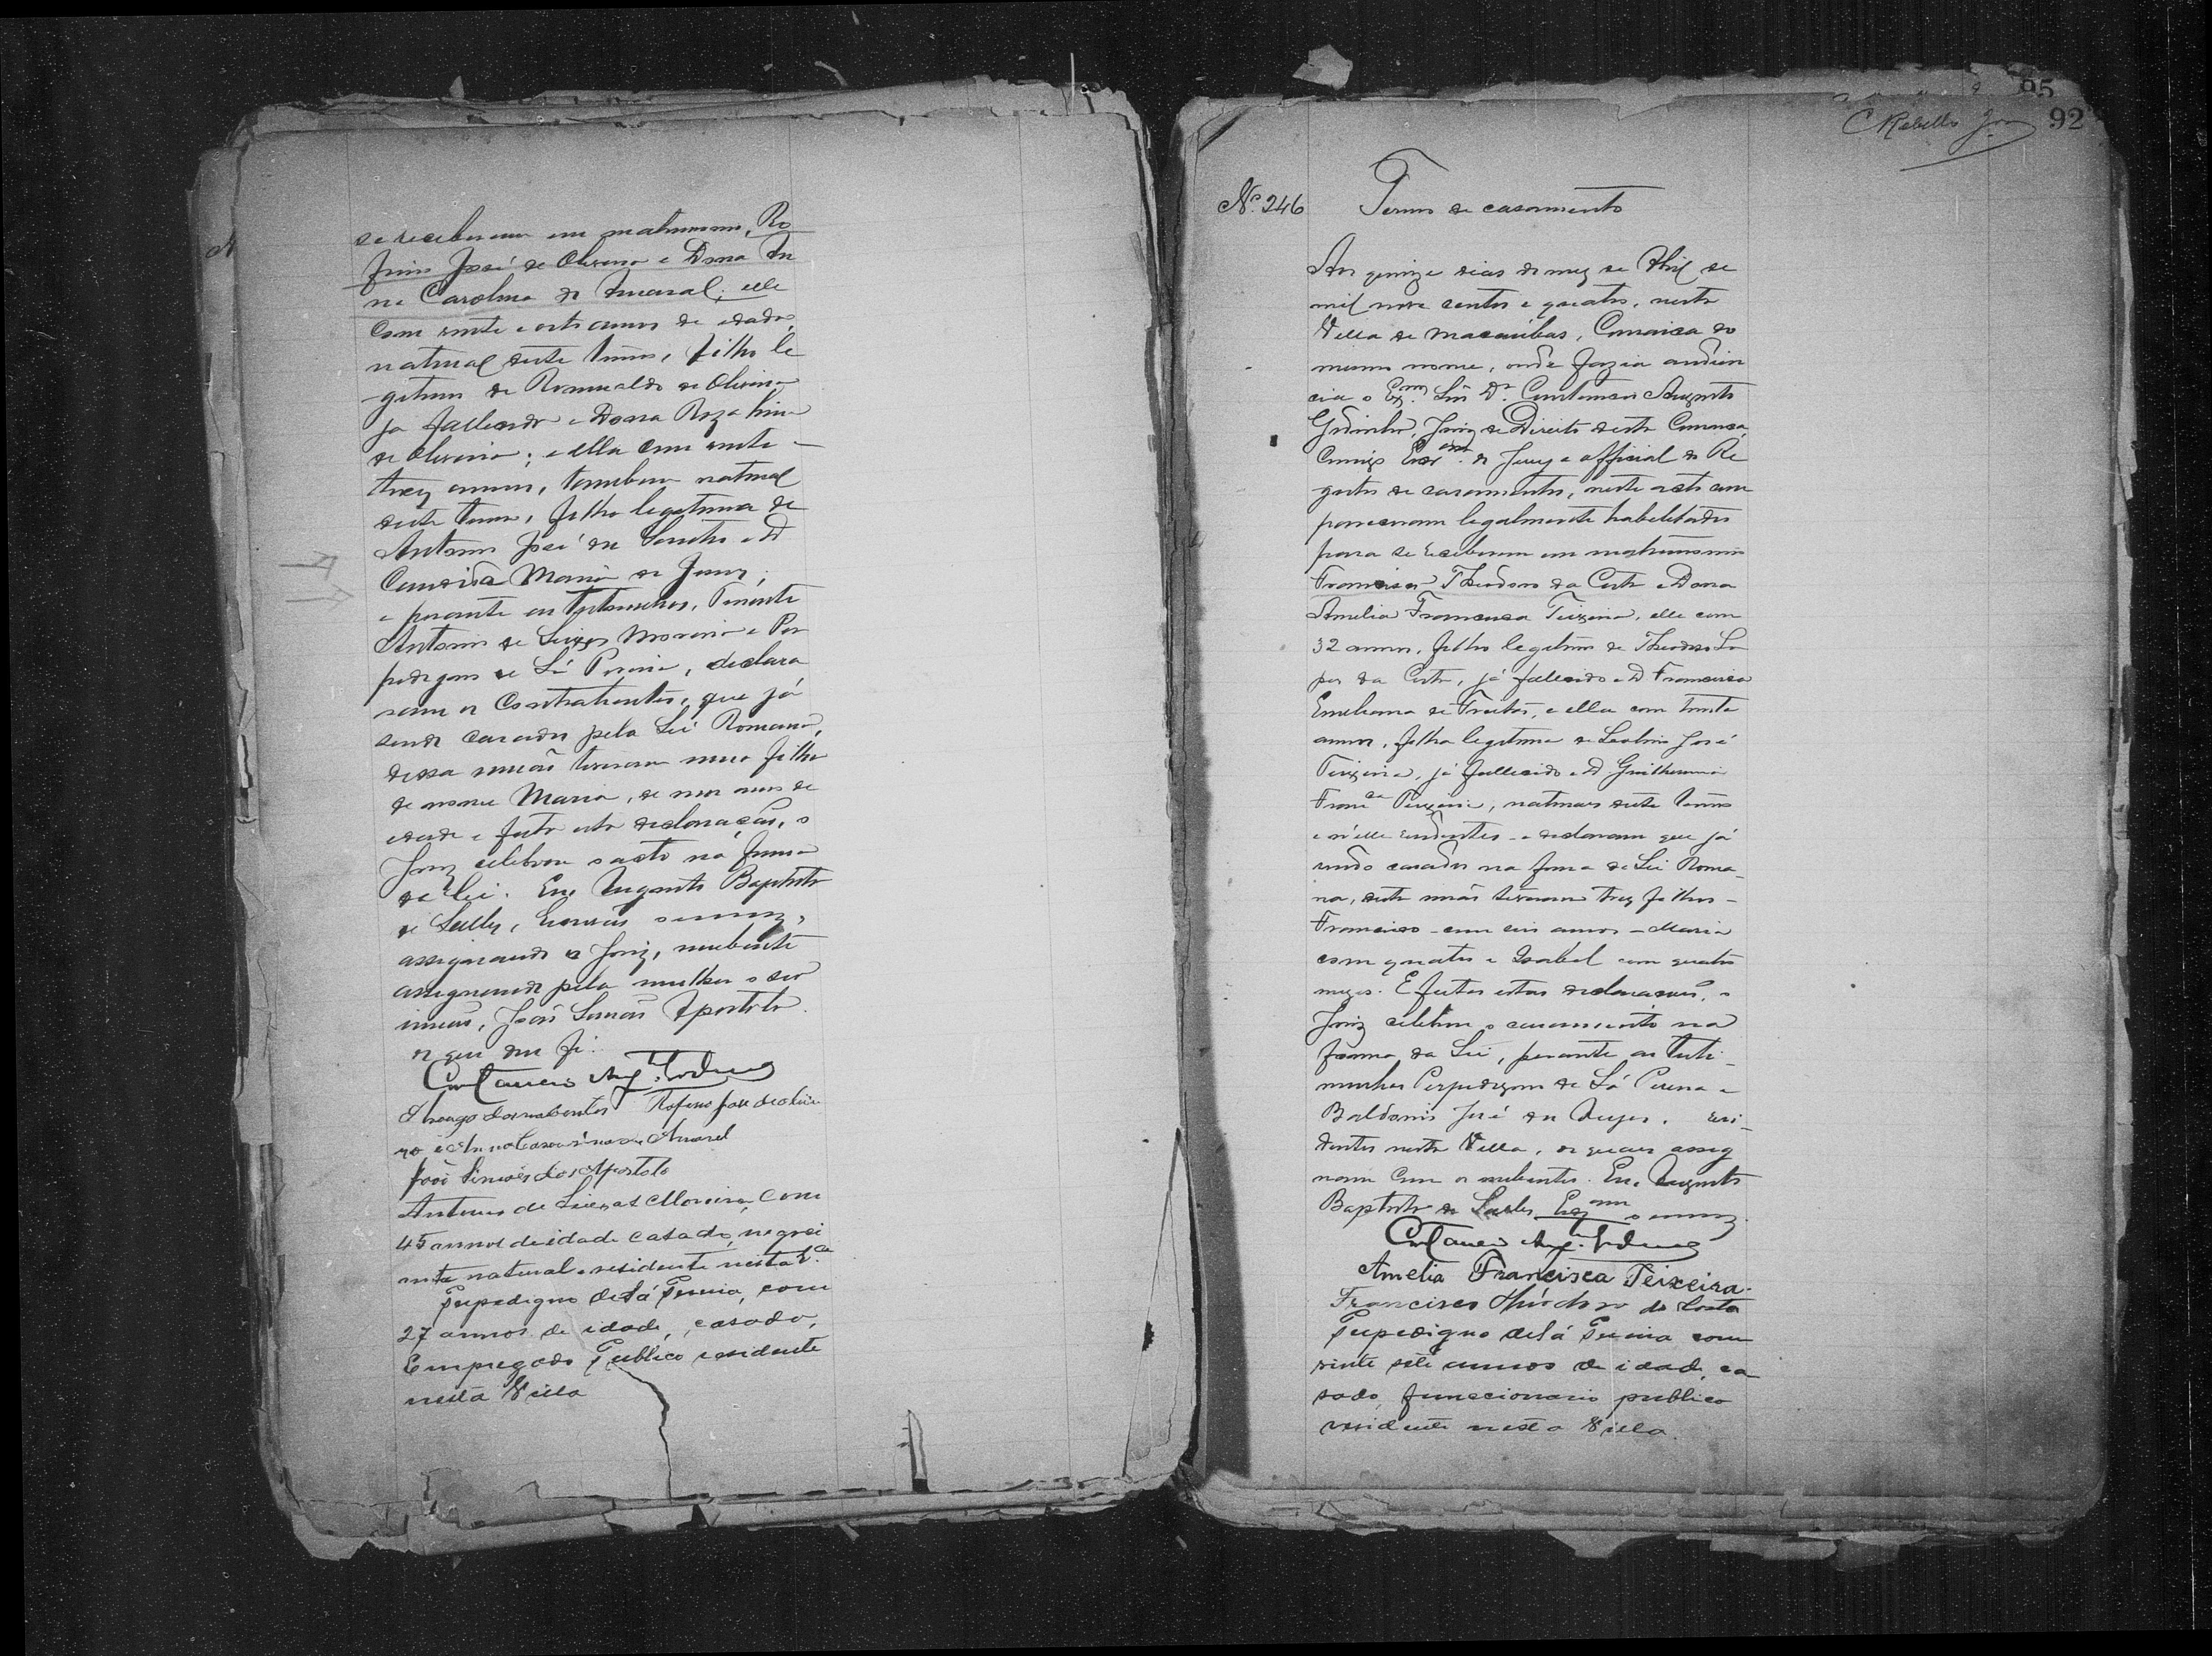 se receberem em matrimonio, Ro
fino José de Oliveira e Dona An
na Carolina do Amaral; elle
com vinte e oito annos de edade,
natural deste termo, filho le
gitimo de Romualdo de Oliveira
ja fallecido e Dona Roza
de Oliveira; e ella com vinte
trez annos, tambem natural
deste termo, filha legitima de
Antonio José dos Santos e D
Candida Maria de Jesus;
e perante as testemunhas, Tenente
Antonio de Seixas Moreira e Per
pedigno de Sá Pereira, declara
ram os Contrahentes, que já
sendo casados pela Lei Romana,
dessa união tiveram uma filha
de nome Maria, de um anno de
edade e feita esta declaração, o
Juiz celebrou o acto na forma
da lei. Eu Augusto Baptista
de Salles, Escrivão o escrevy,
assignando o Juiz, nubente
assignando pela mulher o seo
irmão, João Simões Apostolo.
do que dou fé.
Constancio Aug.to Godinho
A rogo dos nubentes Rofino José de Olivei
ra e Anna Carolina do Amaral
João Simões dos Apostolo
Antonio de Seixas Moreira, com
45 annos de idade casado, negoci
ante natural e residente nesta V.a
Perpedigno de Sá Pereira, com
27 annos de idade, casado,
Empregado Publico residente
nesta Villa
95
C Rebello Jor
92
Nº. 246 Termo de casamento
Aos quinze dias do mez de Abril de
mil nove centos e quatro, nesta
Villa de Macaúbas, Comarca do
mesmo nome, onde fazia audien
cia o Exmo. Snr Dr. Constancio Augusto
Godinho, Juiz de Direito desta Comarca,
Comigo Escr.am do Jury e official do Re
gisto de casamentos, neste acto com
pareceram legalmente habilitados
para se receberem em matrimonio
Francisco Theodoro da Costa e Dona
Amelia Francisca Teixeira, elle com
32 annos, filho legitimo de Theodoro Lo
pes da Costa, já fallecido e D Francisca
Emeliana de Freitas, e ella com trinta
annos, filha legitima de Leolino José
Teixeira, já fallecido e D Guilhermina
Fran.ca Teixeira, naturaes deste termo
e n'elle residentes e declararam que já
sendo casados na forma da Lei Roma
na, desta união tiveram trez filhos -
Francisco com seis annos - Maria
com quatro e Isabel com quatro
mezes. E feitas estas declarações, o
Juiz celebrou o casamento na
forma da Lei, perante as teste
munhas Perpedigno de Sá Pereira e
José de resi
dentes nesta Villa, os quaes assig
nam com os nubentes. Eu, Augusto
Baptista de Salles, Escr.am o escrevy.
Constancio Aug.to Godinho
Amelia Francisca Teixeira.
Francisco Thiodoro da Costa
Perpedigno de Sá Pereira com
vinte sete annos de idade, ca
sado, funccionario publico
residente nesta Villa.